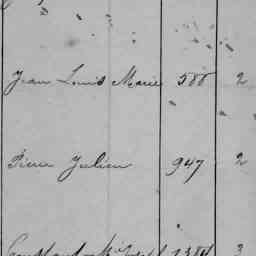 Jean Louis Marie 500 2
Pierre Julien 947 2
3